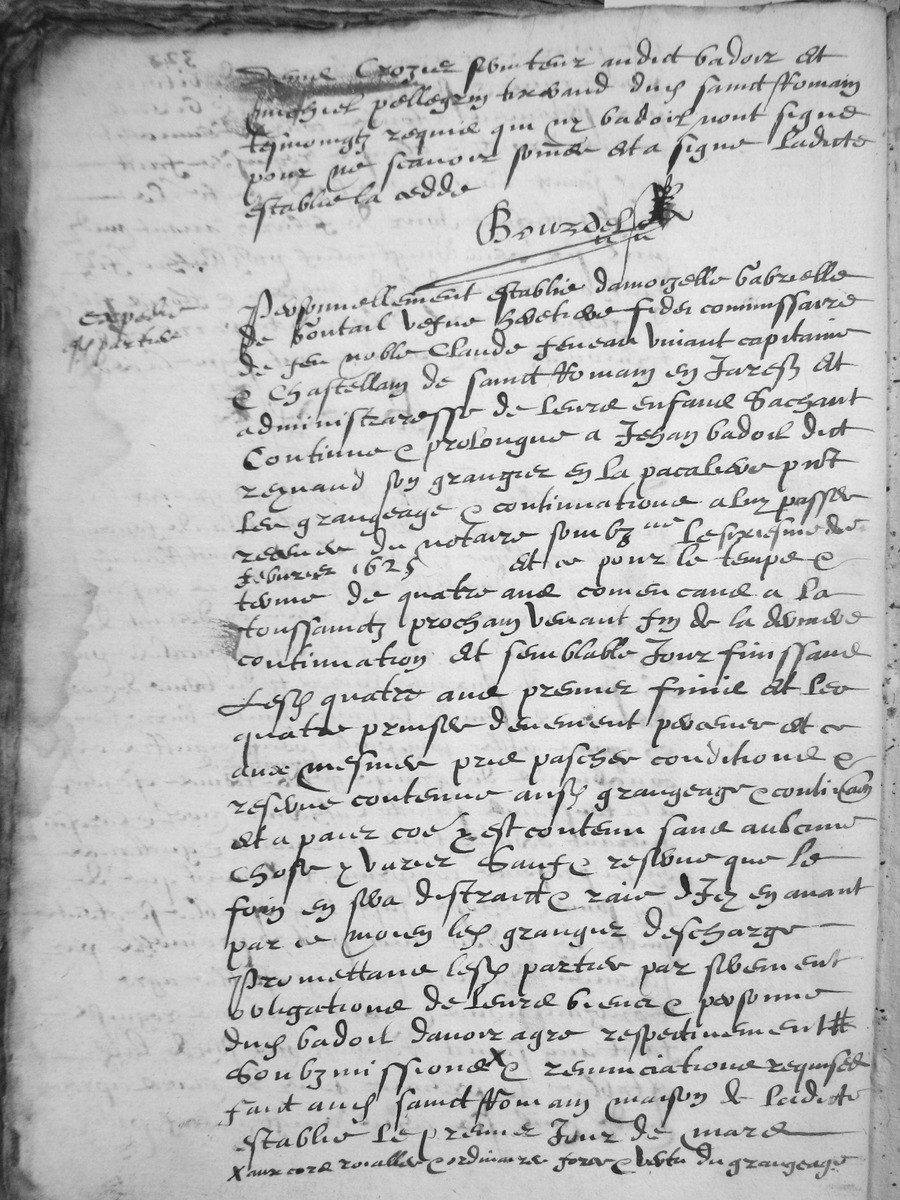 Crozier serviteur audict badoil et
pellegrin tisserand dud sainct Romain
tesmoingz requis qui ny badoil nont signe
pour ne scavoir somes et a signe ladicte
establie la cedde
Bourdel
Personnellement establie damoizelle Gabrielle
de vefve heretiere fidei commissaire
de feu noble Claude feneau vivant capitaine
& Chastellain de sainct Romain en Jarestz et
administraresse de leurs enfans Sachant
Continue & prolongue a Jehan badoil dict
reynaud son grangier en la pnt
les grangeage & continuations a luy passes
receues du notaire soubzne le sixiesme de
febvrier 1625 et ce pour le temps &
terme de quatre ans comencans a la
toussainctz prochain venant fin de la derniere
continuation et semblable Jour finissans
Lesd quatre ans premier finis et les
quatre prinses deuement perceues et ce
aux mesmes pris pasches conditions &
reserve contenus ausd grangeage & continuaon
et a paier coe y est contenu sans aulcune
Chose y varier Sauf & reserve que le
foin en sera distraict & raie dIcy en avant
par ce moien led grangier descharge
Promettans lesd parties par serement
obligations de leurs biens & personne
dud badoil davoir agre respectivement #
Soubzmissions x & renunciations requises
faict aud sainct Romain maison de ladicte
establie le premier Jour de mars
x aux cors roialles & ordinaires fores & vertu du grangeage
expedie
es parties